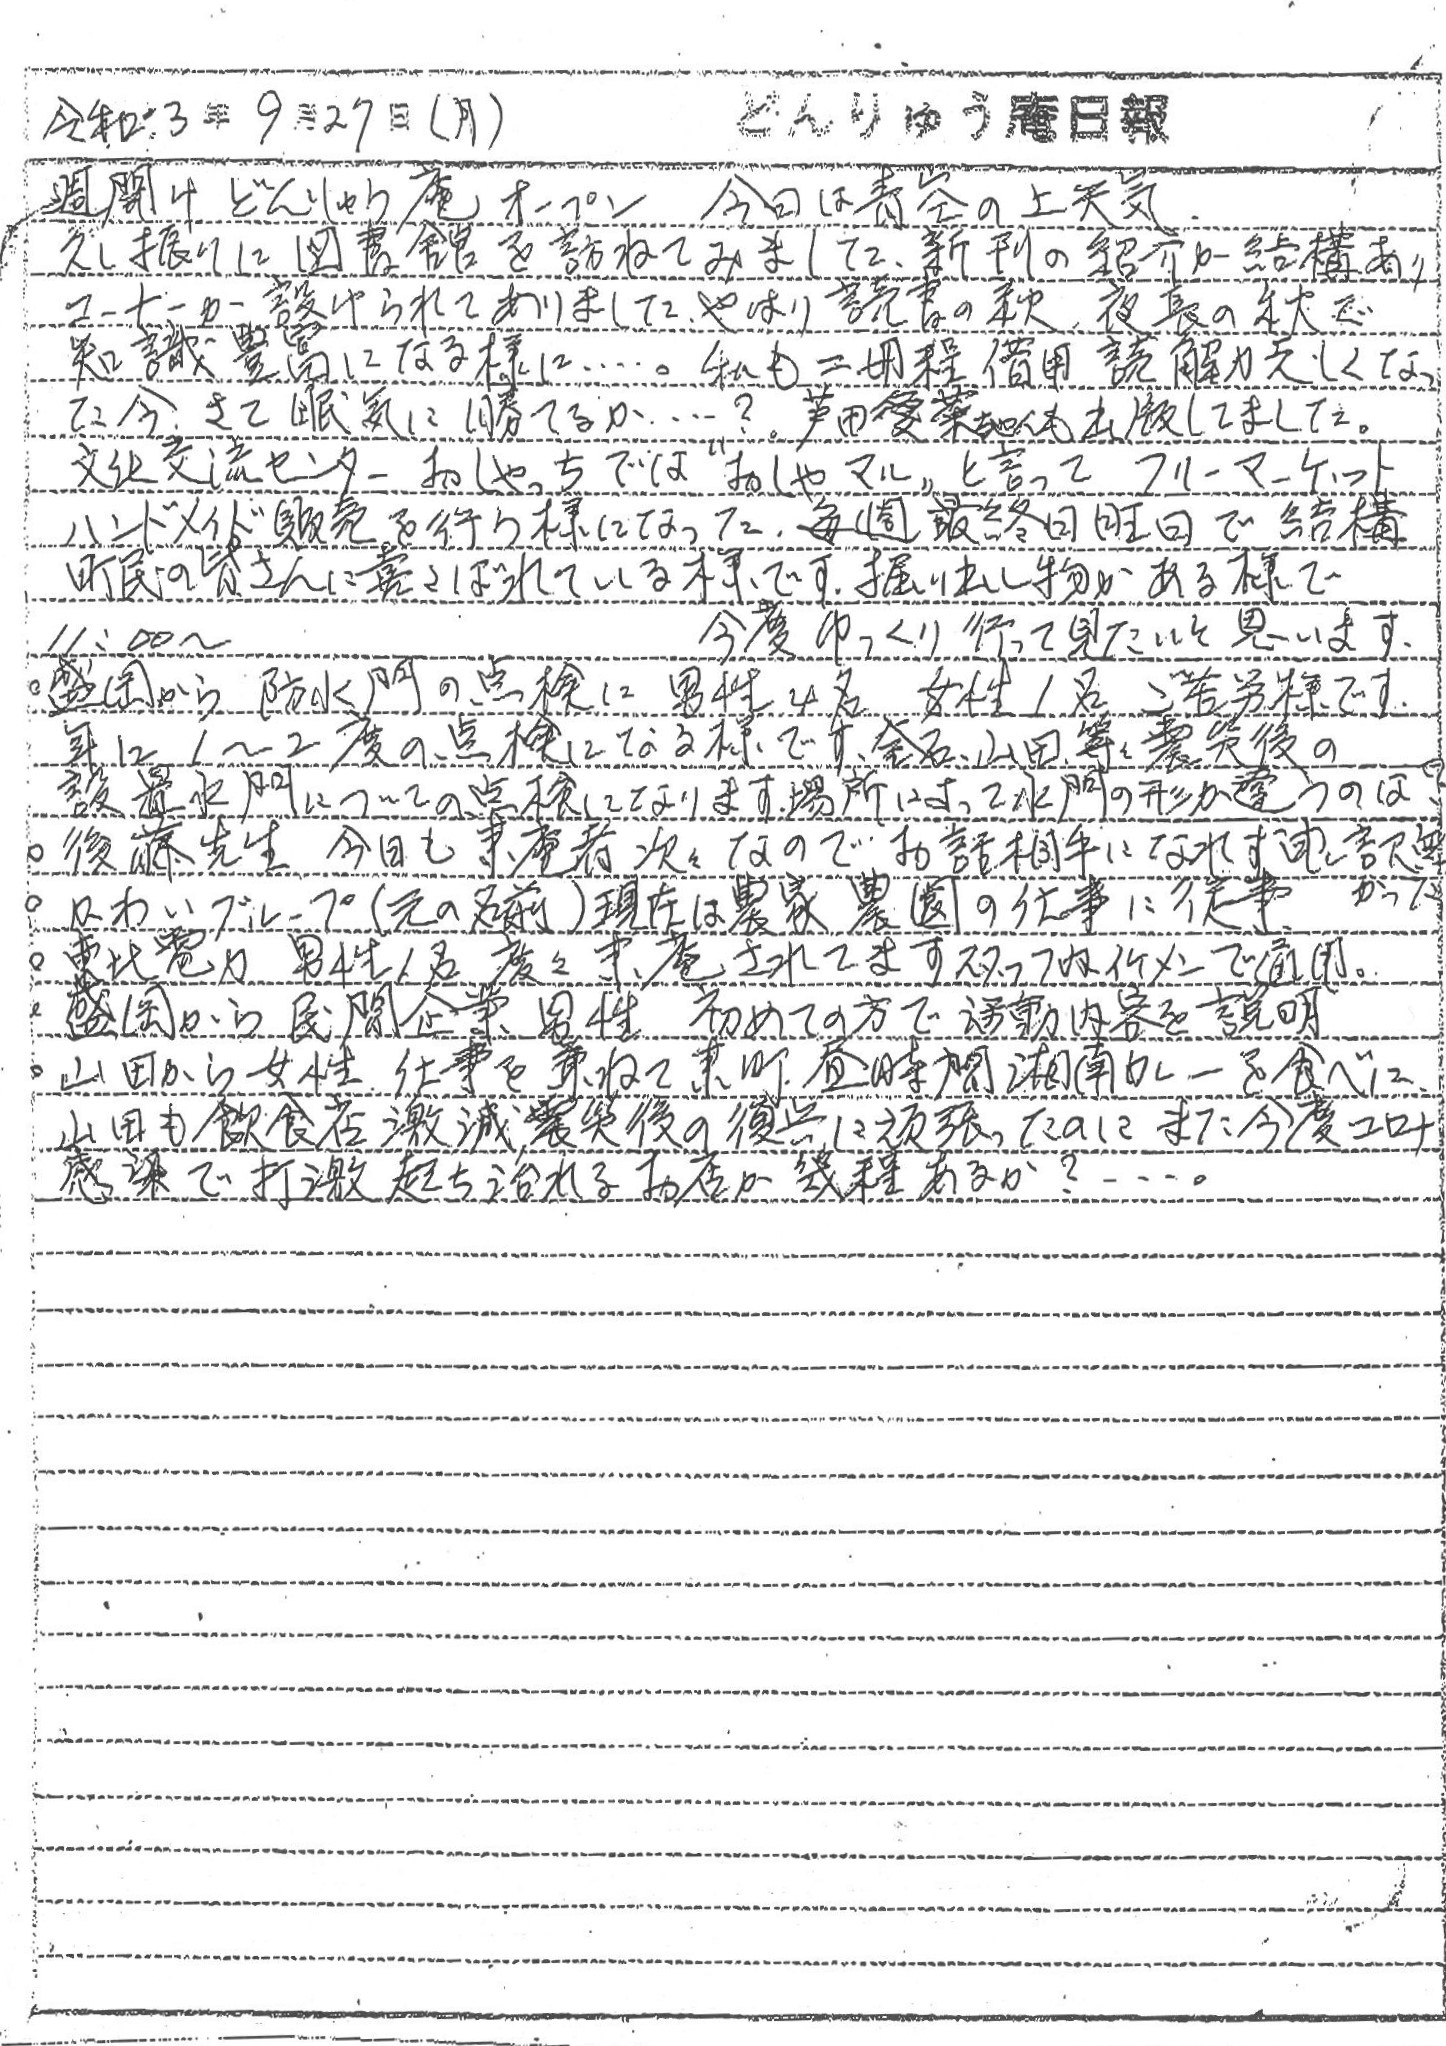 令和3年9月27日(月) どんりゅう庵日報
週開け どんりゅう庵オープン 今日は青空の上天気.
久し振りに図書館を訪ねてみました、新刊の紹介が結構あり
コーナーが設けられてありました、やはり読書の秋、夜長の秋で
知識豊富になる様に……。私も二冊程借用読解力乏しくなっ
た今、さて眠気に勝てるか……?。芦田愛菜ちゃんも出版してました。
文化交流センターおしゃっちでは"おしゃマル„と言って フリーマーケット
ハンドメイド販売を行う様になった、毎週最終日旺日で結構
町民の皆さんに喜こばれている様です、掘り出し物がある様で
11:00〜 今度ゆっくり行って見たいと思います、
。盛岡から防水門の点検に男性4名 女性1名 ご苦労様です.
年に1〜2度の点検になる様です、釜石、山田等々震災後の
設置水門についての点検になります、場所によって水門の形が違うのは
。後藤先生 今日も来庵者次々なのでお話相手になれず申し訳無
。 わいグループ(元の名前)現在は農家 農園の仕事に従事、 かった
。東北電力 男性1名 度々来庵されてますスタッフはイケメンで通用。
。盛岡から民間企業、男性 初めての方で活動内容を説明
。山田から女性 仕事を兼ねて来町、昼時間湘南カレーを食べに、
山田も飲食店激減、震災後の復興に頑張ったのにまた今度コロナ
感染で打激起ち治れるお店が幾程あるか?……。